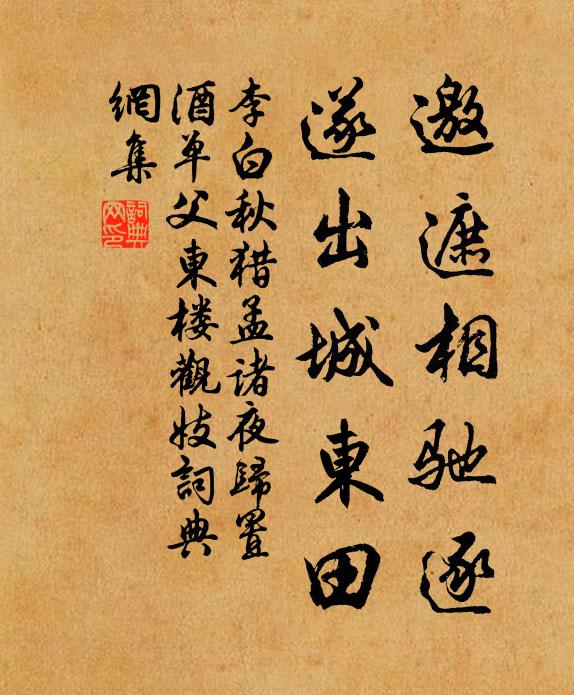 邀遮相馳逐
遂出城東田
李白秋猎孟诸夜歸置
酒单父東楼觀妓詞典
網集
詞典
网印